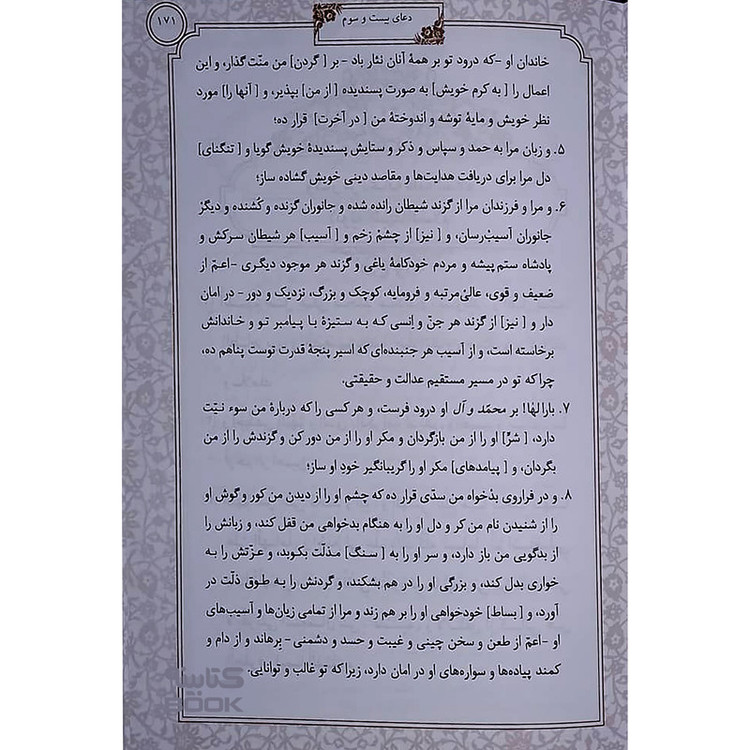 دعای بیست و سوم
۱۷۱
خاندان او -که درود تو بر همهٔ آنان نثار باد- بر [ گردن] من منّت گذار، و این
اعمال را [ به کرم خویش] به صورت پسندیده [ از من] بپذیر، و [ آنها را] مورد
نظر خویش و مایهٔ توشه و اندوختهٔ من [ در آخرت] قرار ده؛
۵. و زبان مرا به حمد و سپاس و ذکر و ستایش پسندیدهٔ خویش گویا و [ تنگنای]
دل مرا برای دریافت هدایت‌ها و مقاصد دینی خویش گشاده ساز؛
۶. و مرا و فرزندان مرا از گزند شیطان رانده شده و جانوران گزنده و کُشنده و دیگر
جانوران آسیب‌رسان، و [ نیز] از چشم زخم و [ آسیب] هر شیطان سرکش و
پادشاه ستم پیشه و مردم خودکامهٔ یاغی و گزند هر موجود دیگری -اعمّ از
ضعیف و قوی، عالی‌مرتبه و فرومایه، کوچک و بزرگ، نزدیک و دور- در امان
دار و [ نیز] از گزند هر جنّ و اِنسی که به ستیزهٔ با پیامبر تو و خاندانش
برخاسته است، و از آسیب هر جنبنده‌ای که اسیر پنجهٔ قدرت توست پناهم ده،
چرا که تو در مسیر مستقیم عدالت و حقیقتی.
۷. بارالها! بر محمّد و آل او درود فرست، و هر کسی را که دربارهٔ من سوء نیّت
دارد، [ شرِّ] او را از من بازگردان و مکر او را از من دور کن و گزندش را از من
بگردان، و [ پیامدهای] مکر او را گریبانگیر خودِ او ساز؛
۸. و در فراروی بدْخواه من سدّی قرار ده که چشم او را از دیدن من کور و گوش او
را از شنیدن نام من کر و دل او را به هنگام بدخواهی من قفل کند، و زبانش را
از بدگویی من باز دارد، و سر او را به [ سنگ] مذلّت بکوبد، و عزّتش را به
خواری بدل کند، و بزرگی او را در هم بشکند، و گردنش را به طوق ذلّت در
آورد، و [ بساط] خودخواهی او را بر هم زند و مرا از تمامی زیان‌ها و آسیب‌های
او -اعمّ از طعن و سخن چینی و غیبت و حسد و دشمنی- بِرهاند و از دام و
کمند پیاده‌ها و سواره‌های او در امان دارد، زیرا که تو غالب و توانایی.
BOOK